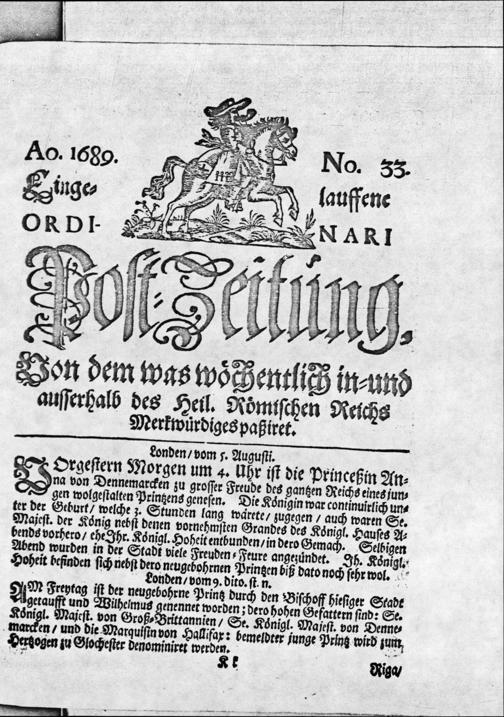 Ao. 1689.
No. 33.
Einge-
lauffene
ORDI-
NARI
Post-Zeitung,
Von dem was wöchentlich in-und
ausserhalb des Heil. Römischen Reichs
Merkwürdiges paßiret.
Londen/ vom 5. Augusti.
VOrgestern Morgen um 4. Uhr ist die Princeßin An-
na von Dennemarcken zu grosser Freude des gantzen Reichs eines jun-
gen wolgestalten Printzens genesen. Die Königin war continuirlich un-
ter der Geburt/ welche 3. Stunden lang wärete/ zugegen/ auch waren Se.
Majest. der König nebst denen vornehmsten Grandes des Königl. Hauses A-
bends vorhero/ ehe Ihr. Königl. Hoheit entbunden/ in dero Gemach. Selbigen
Abend wurden in der Stadt viele Freuden-Feure angezündet. Ih. Königl.
Hoheit befinden sich nebst dero neugebohrnen Printzen biß dato noch sehr wol.
Londen/ vom 9. dito. st. n.
AM Freytag ist der neugebohrne Printz durch den Bischoff hiesiger Stadt
getaufft und Wilhelmus genennet worden; dero hohen Gefattern sind: Se.
Königl. Majest. von Groß-Brittannien/ Se. Königl. Majest. von Denne-
marcken/ und die Marquisin von Hallifax: bemeldter junge Printz wird zum
Hertzogen zu Glochester denominiret werden.
K k
Riga/